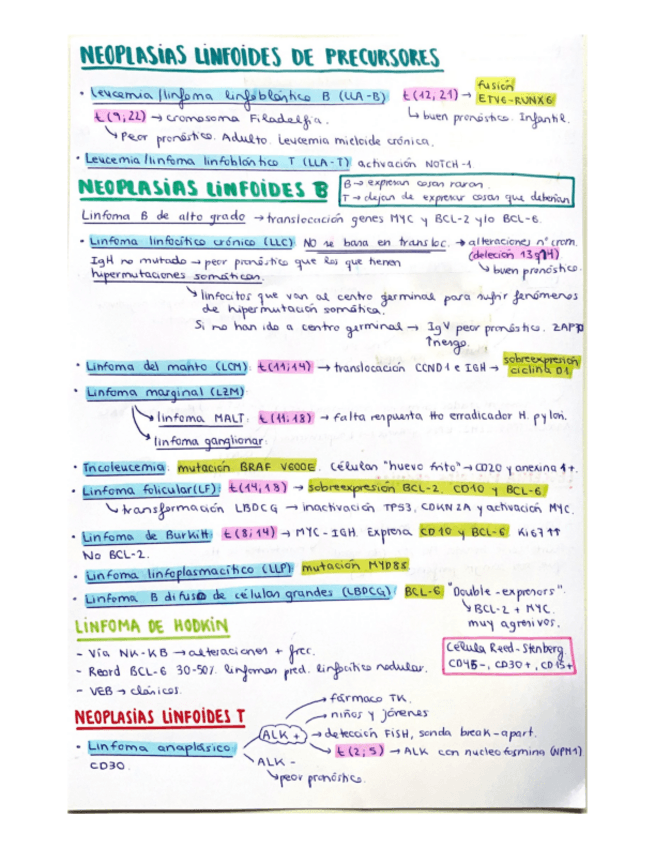 NEOPLASIAS LINFOIDES DE PRECURSORES
· Leucemia/linfoma linfoblástico B (LLA-B) t(12,21) → fusión ETV6-RUNX6
↳ buen pronóstico. Infantil.
t(9,22) → cromosoma Filadelfia.
↳ Peor pronóstico. Adulto. Leucemia mieloide crónica.
· Leucemia/linfoma linfoblástico T (LLA-T) activación NOTCH-1
NEOPLASIAS LINFOIDES B
B → expresan cosas raras.
T → dejan de expresar cosas que deberían
Linfoma B de alto grado → translocación genes MYC y BCL-2 y/o BCL-6.
· Linfoma linfocítico crónico (LLC) NO se basa en transloc. → alteraciones nº crom.
(deleción 13q14)
↳ buen pronóstico.
IgH no mutado → peor pronóstico que los que tienen
hipermutaciones somáticas.
↳ linfocitos que van al centro germinal para sufrir fenómenos
de hipermutación somática.
Si no han ido a centro germinal → IgV peor pronóstico. ZAP70
↑riesgo.
· Linfoma del manto (LCM) t(11;14) → translocación CCND1 e IGH → sobreexpresión
ciclina D1
· Linfoma marginal (LZM)
linfoma MALT: t(11,18) → falta respuesta tto erradicador H. pylori.
linfoma ganglionar:
· Tricoleucemia: mutación BRAF V600E. Células "huevo frito" → CD20 y anexina 1+.
· Linfoma folicular (LF): t(14,18) → sobreexpresión BCL-2. CD10 y BCL-6
↳ transformación LBDCG → inactivación TP53, CDKN2A y activación MYC.
· Linfoma de Burkitt t(8;14) → MYC-IGH. Expresa CD10 y BCL-6 Ki67↑↑
No BCL-2.
· Linfoma linfoplasmacítico (LLP) mutación MYD88
· Linfoma B difuso de células grandes (LBDCG) BCL-6 "Double-expressors".
↳ BCL-2 + MYC.
muy agresivos.
LINFOMA DE HODKIN
- Vía NK-KB → alteraciones + frec.
- Reord BCL-6 30-50% linfomas pred. linfocítico nodular.
- VEB → clásicos.
Célula Reed-Stenberg.
CD45-, CD30+, CD15+
NEOPLASIAS LINFOIDES T
· Linfoma anaplásico
CD30.
ALK +
→ fármaco TK.
→ niños y jóvenes
→ detección FISH, sonda break-apart.
→ t(2;5) → ALK con nucleofosmina (NPM1)
ALK -
↳ peor pronóstico.